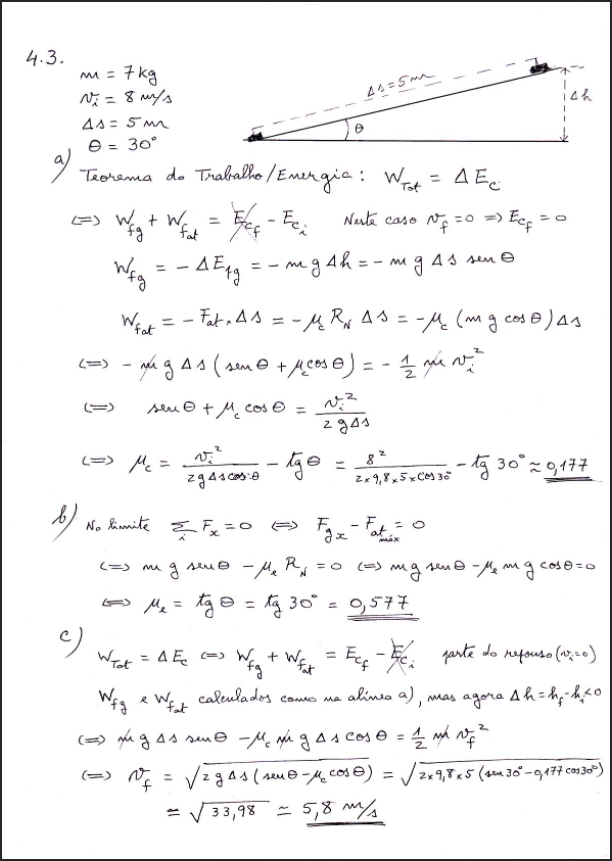 4.3.
m = 7 kg
v_i = 8 m/s
Δs = 5 m
θ = 30°
Δs = 5 m
Δh
θ
a) Teorema do Trabalho/Energia: W_Tot = ΔE_c
(=) W_fg + W_fat = E_cf - E_ci Neste caso v_f = 0 => E_cf = 0
W_fg = - ΔE_pg = - m g Δh = - m g Δs senθ
W_fat = - F_at . Δs = - μ_c R_N Δs = - μ_c (m g cosθ) Δs
(=) - m g Δs (senθ + μ_c cosθ) = - 1/2 m v_i²
(=) senθ + μ_c cosθ = v_i² / 2gΔs
(=) μ_c = v_i² / 2gΔs cosθ - tgθ = 8² / 2×9,8×5×cos30° - tg 30° ≈ 0,177
b) No limite Σ_i F_x = 0 (=) F_gx - F_at máx = 0
(=) m g senθ - μ_e R_N = 0 (=) m g senθ - μ_e m g cosθ = 0
(=) μ_e = tgθ = tg 30° = 0,577
c) W_Tot = ΔE_c (=) W_fg + W_fat = E_cf - E_ci parte do repouso (v_i=0)
W_fg e W_fat calculados como na alínea a), mas agora Δh = h_f - h_i < 0
(=) m g Δs senθ - μ_c m g Δs cosθ = 1/2 m v_f²
(=) v_f = √(2gΔs (senθ - μ_c cosθ)) = √(2×9,8×5 (sen30° - 0,177 cos30°))
≃ √33,98 ≃ 5,8 m/s